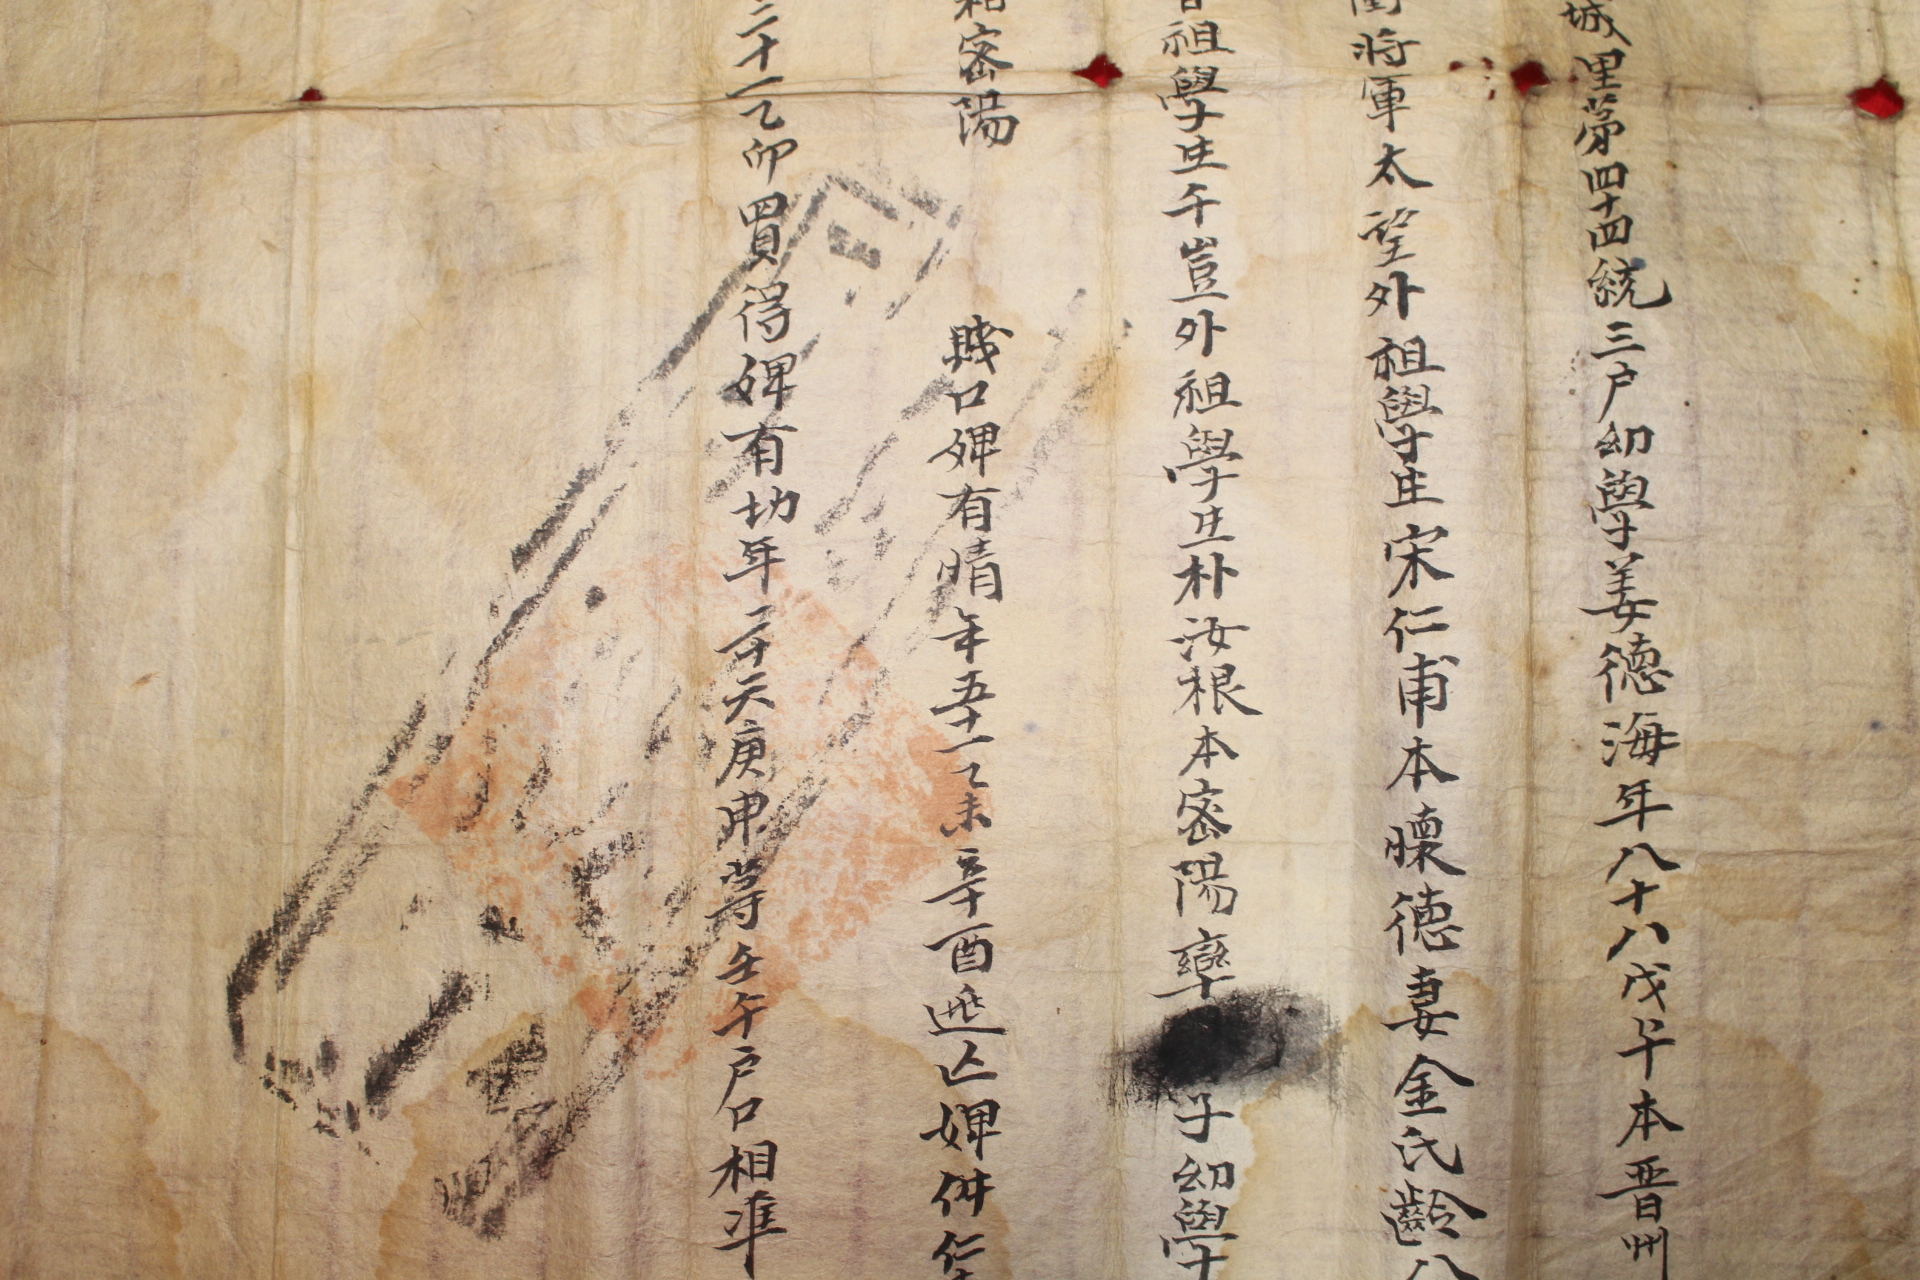 城里苐四十四統三戶幼學姜德海年八十八戊午本晋州
將軍太望外祖學生宋仁甫本懷德妻金氏齡八
祖學生千豈外祖學生朴汝根本密陽率 子幼學
密陽 賤口婢有晴年五十一乙未辛酉逃亡婢併仁
二十一乙卯買得婢有㔕年二十六庚申等壬午戶口相準